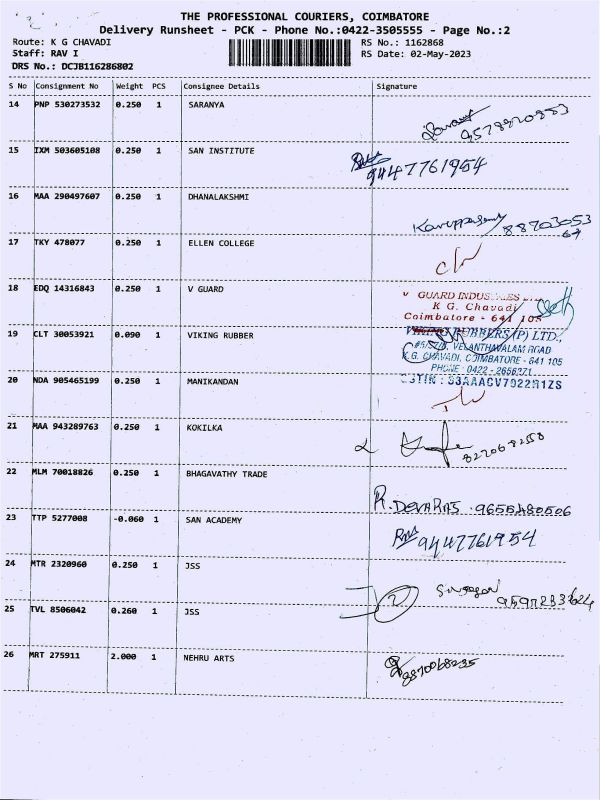 THE PROFESSIONAL COURIERS, COIMBATORE
Delivery Runsheet - PCK - Phone No.:0422-3505555 - Page No.:2
Route: K G CHAVADI RS No.: 1162868
Staff: RAV I RS Date: 02-May-2023
DRS No.: DCJB116286802
S No Consignment No Weight PCS Consignee Details Signature
14 PNP 530273532 0.250 1 SARANYA
15 IXM 503605108 0.250 1 SAN INSTITUTE
9447761954
16 MAA 290497607 0.250 1 DHANALAKSHMI
17 TKY 478077 0.250 1 ELLEN COLLEGE
18 EDQ 14316843 0.250 1 V GUARD
V GUARD
K G. Chavadi
Coimbatore - 641 105
19 CLT 30053921 0.090 1 VIKING RUBBER
RUBBERS (P) LTD.,
VELANTHAVALAM ROAD
K.G. CHAVADI, COIMBATORE - 641 105
PHONE : 0422 - 2656271
20 NDA 905465199 0.250 1 MANIKANDAN
GSTIN : 33AAACV7922R1ZS
21 MAA 943289763 0.250 1 KOKILKA
22 MLM 70018826 0.250 1 BHAGAVATHY TRADE
R. DEVARAS 9655480506
23 TTP 5277008 -0.060 1 SAN ACADEMY
9447761954
24 MTR 2320960 0.250 1 JSS
25 TVL 8506042 0.260 1 JSS
26 MRT 275911 2.000 1 NEHRU ARTS